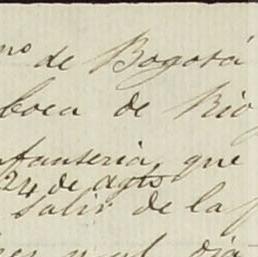 no de Bogotá
boca de Rio
fanteria que
24 de agto
Salir de la
dia